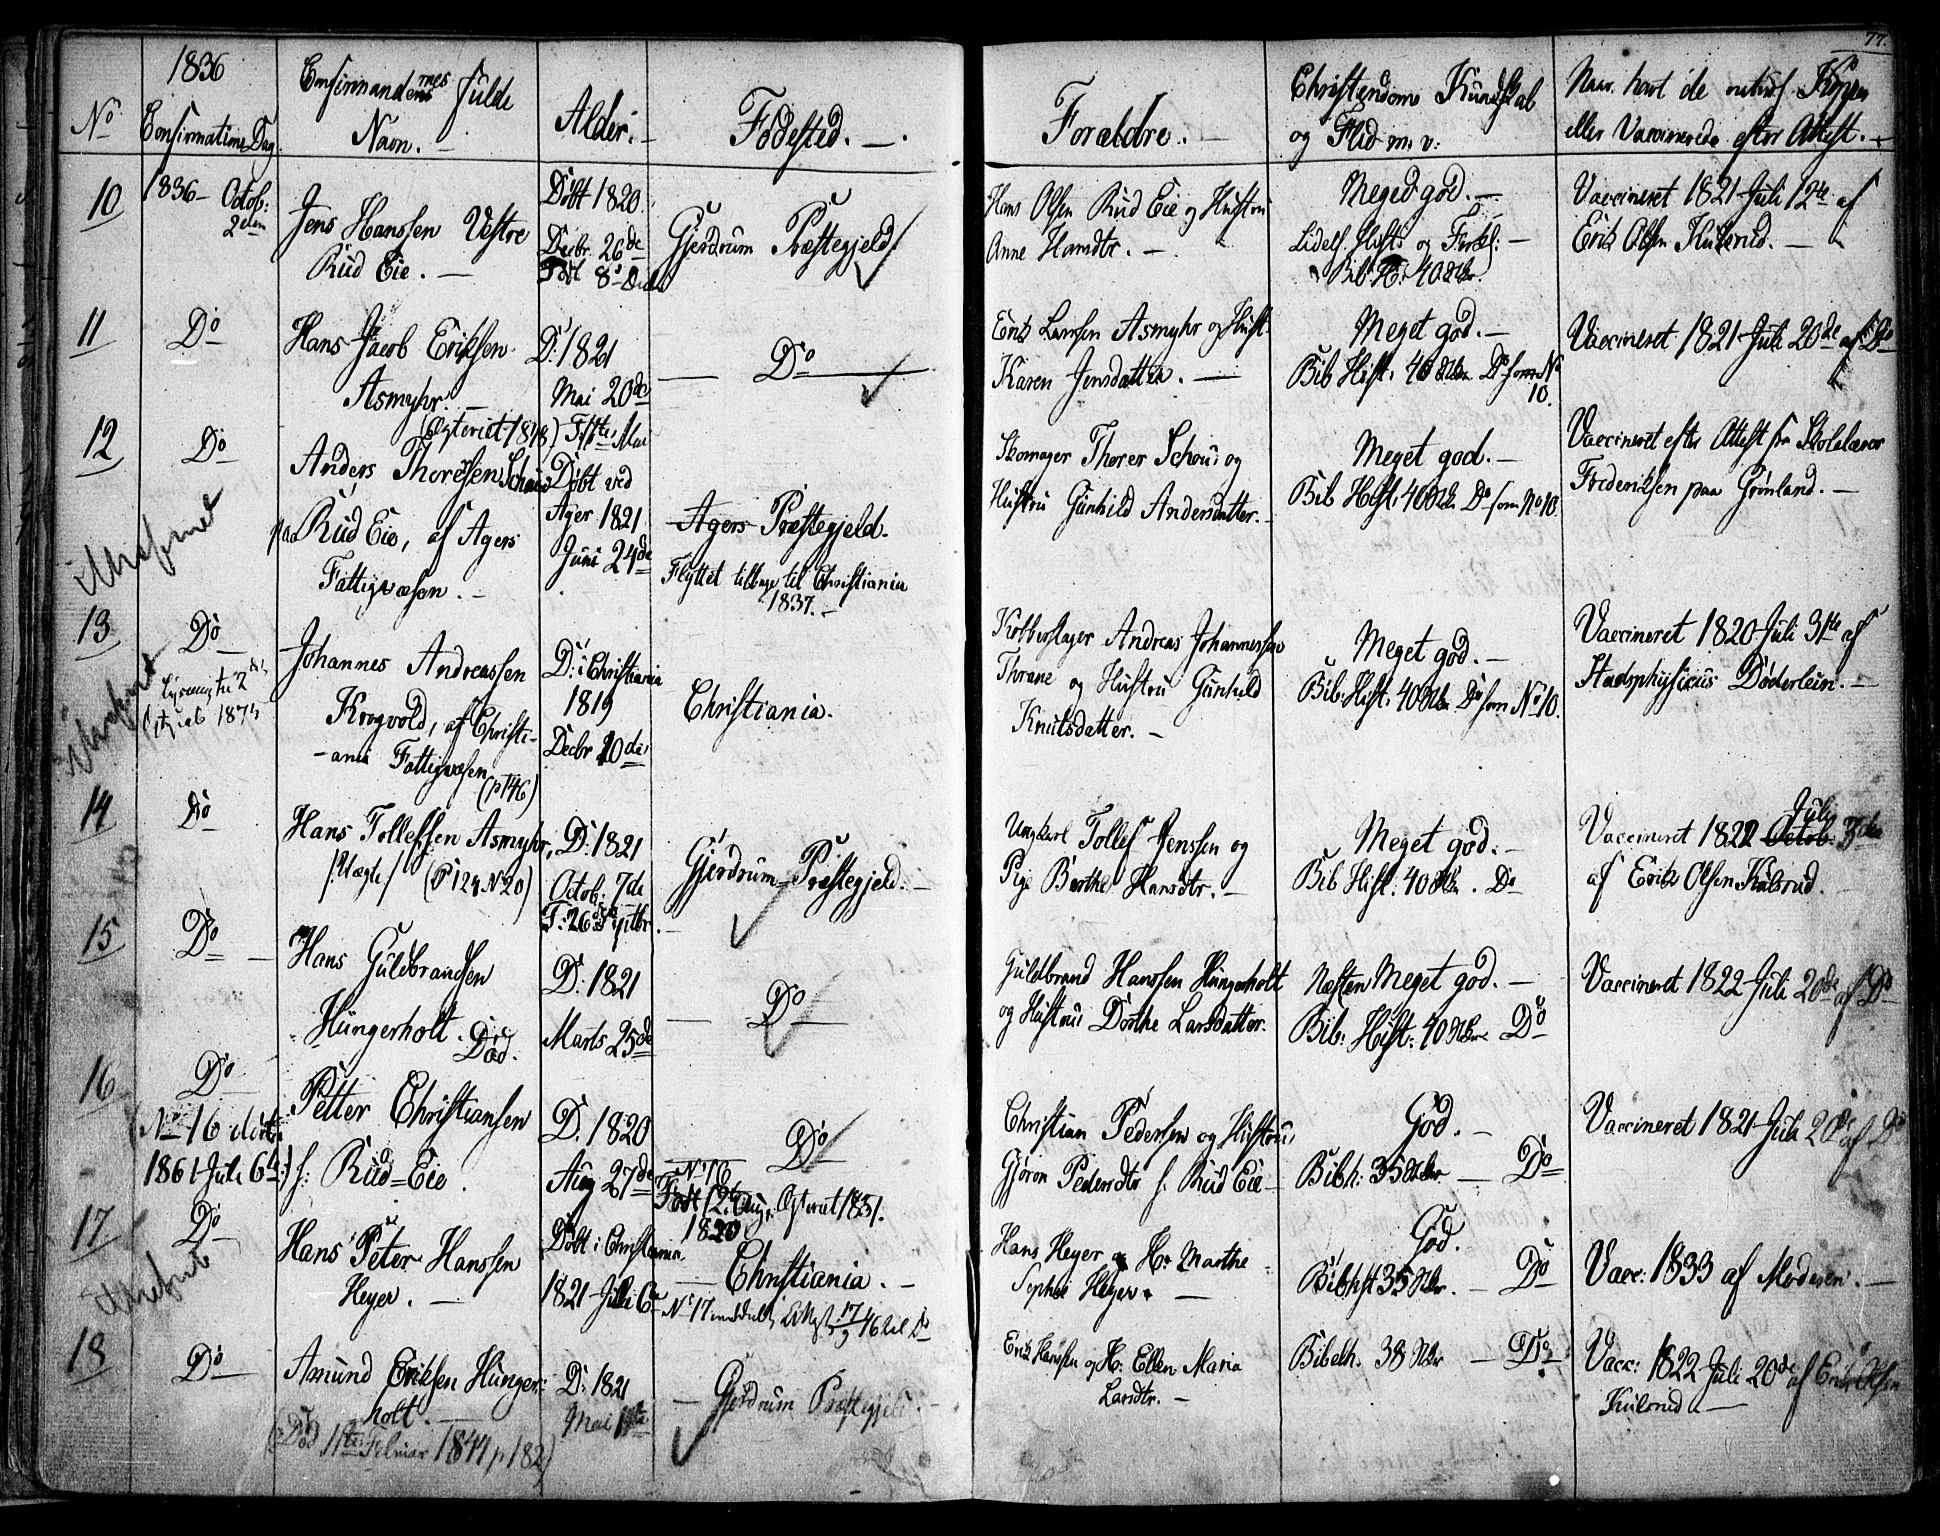 77.
1836
No
Confirmations Dag.
Confirmandernes fulde
Navn. —
Alder. —
Fødested. —
Forældre. —
Christendoms Kundskab
og Flid m. v:
Naar havt de naturl. Kopper
eller Vaccinerede efter Attest. —
10
1836 – Octob:
2den
Jens Hanssen Vestre
Rud Eie. —
Døbt 1820
Decbr. 26de
Født 8de
Gjerdrum Præstegjeld
Hans Olsen Rud Eie og Hustru
Anne Hansdtr. —
Meged god. —
Bib. H: 40
Vaccineret 1821 Juli 12te af
Erik Olsen Kulsrud. —
11
Do
Hans Jacob Eriksen
Asmyhr. —
D: 1821
Mai 20de
— Do —
Erik Larssen Asmyhr og Hust.
Karen Jensdatter. —
Meget god. —
Bib Hist. 40 Do som No
10.
Vaccineret 1821 Juli 20de af Do
12
Do
(Egteviet 1848)
Anders Thoresen Schou
paa Rud Eie, af Agers
Fattigvæsen. —
Døbt ved
Ager 1821
Juni 24de
Agers Præstegjeld.
Flyttet tilbage til Christiania
1837. —
Skomager Thorer Schou og
Hustru Gunhild Andersdatter. —
Meget god. —
Bib Hist. 40 Do som No 10.
Vaccineret efter Attest fra Skolelærer
Frederiksen paa Grønland. —
13
Do
Johannes Andreassen
Krogvold, af Christi-
ania Fattigvæsen
(p 146)
D: i Christiania
1819
Decbr 10de
Christiania.
Kobberslager Andreas Johannessen
Thrane og Hustru Gunhild
Knutsdatter. —
Meget god. —
Bib. Hist. 40 Do som No 10.
Vaccineret 1820 Juli 31te af
Stadsphysicus Døderlein. —
14
Do
Hans Tollefsen Asmyhr,
/Uægte/ (P 124 No 20)
D: 1821
Octob: 7de
F: 26de Septbr.
Gjerdrum Præstegjeld. —
Ungkarl Tollef Jenssen og
Pige Berthe Hansdtr. —
Meget god. —
Bib Hist. 40 Do
Juli
Vaccineret 1822 Octob. 3die
af Erik Olsen Kulsrud.
15
Do
Hans Guldbrandsen
Hungerholt.
Død.
D: 1821
Marts 25de
— Do —
Guldbrand Hanssen Hungerholt
og Hustru Dorthe Larsdatter.
Næsten Meget god. —
Bib: Hist: 40 Do
Vaccineret 1822 Juli 20de af Do
16
Do
No 16 død
1861 Juli 6te
Petter Christiansen
f: Rud-Eie.
D. 1820
Aug 27de
Do
No 16
Født 12te Aug.
1820
Egteviet 1851.
Christian Pedersen og Hustru
Gjøron Pedersdtr f. Rud Eie
God. —
Bibh: 35 — Do
Vaccineret 1821 Juli 20de af Do
17
Do
Hans Peter Hanssen
Heyer. —
Døbt i Christiania
1821 Juli 6te
— Christiania. —
No 17 17/9 46 til Do
Hans Heyer og H: Marthe
Sophie Heyer. —
God.
Bibhst 35 — Do
Vacc: 1833 af Moderen. —
18
Do
Amund Eriksen Hunger-
holt. —
(Død 11te Februar 1844 p 182)
D: 1821
Mai 1ste
— Gjerdrum Præstegjeld. —
Erik Hanssen og H: Ellen Maria
Larsdtr. —
Bibelh. 38 — Do
Vacc: 1822 Juli 20de af Erik Olsen
Kulsrud —